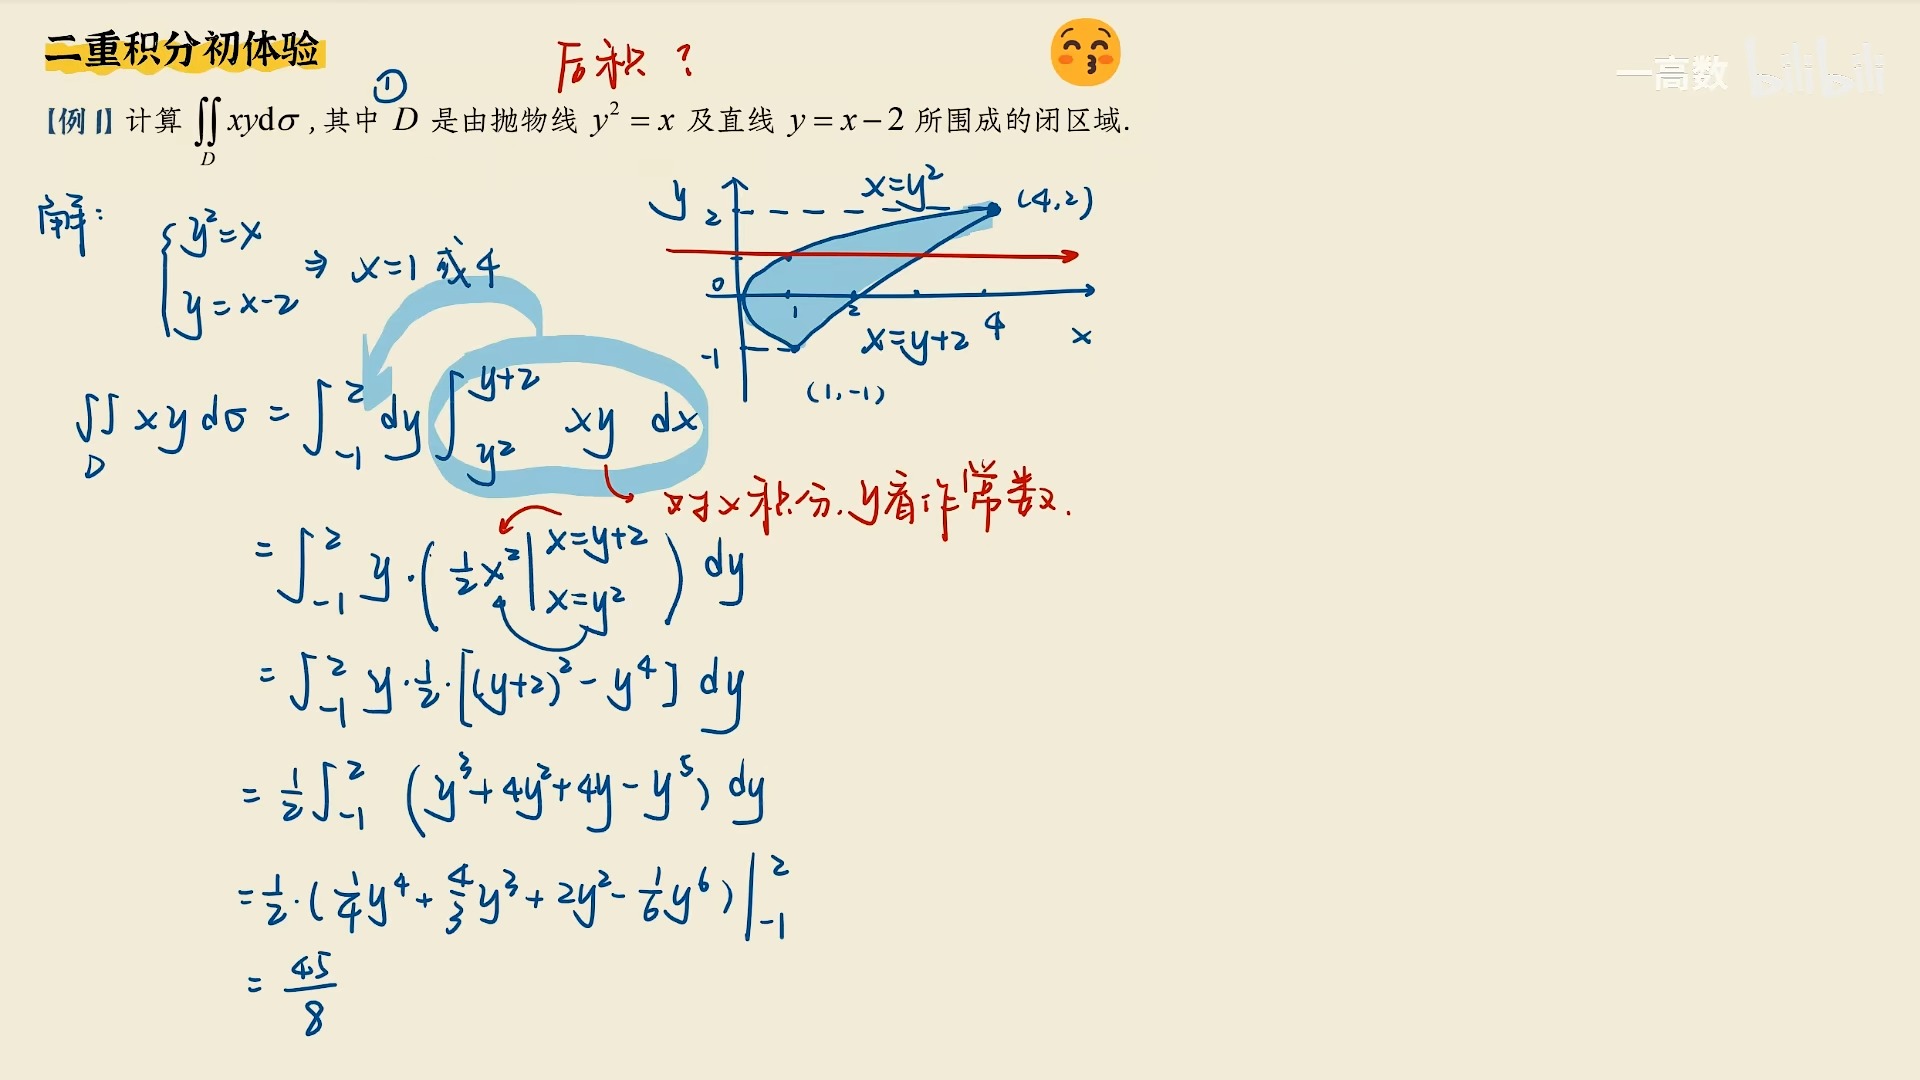 二重积分初体验
后积？
一高数 bilibili
①
【例1】计算 ∬_D xydσ ,其中 D 是由抛物线 y² = x 及直线 y = x − 2 所围成的闭区域.
解:
{ y²=x
y=x-2
⇒ x=1 或 4
y
2
x=y²
(4,2)
0
1
2
4
x
x=y+2
-1
(1,-1)
∬_D xy dσ = ∫_{-1}^{2} dy ∫_{y²}^{y+2} xy dx
对x积分.y看作常数.
= ∫_{-1}^{2} y·( ½x² |_{x=y²}^{x=y+2} ) dy
= ∫_{-1}^{2} y·½·[(y+2)²-y⁴] dy
= ½∫_{-1}^{2} (y³+4y²+4y-y⁵) dy
= ½·(¼y⁴+4/3y³+2y²-1/6y⁶)|_{-1}^{2}
= 45/8